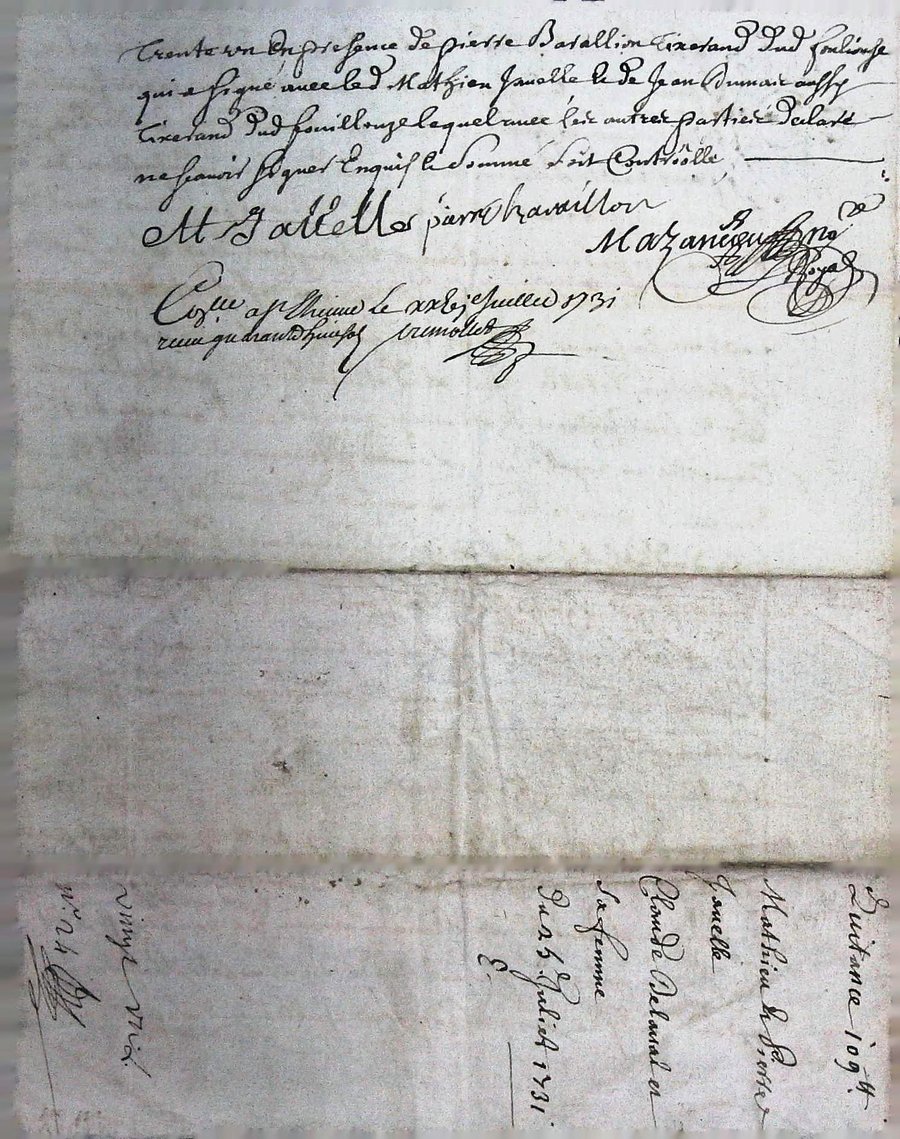 trente un en presence de pierre Barallion tixerand dud foulionse
qui a signé avec led Mathieu Janelle & de Jean Dumas aussy
tixerand dud fouillouze lequel avec les autres parties declaré
ne scavoir signer enquis & sommé soit Controolle
M Jallelle pierre baraillon
Mazancieu no.re
Royal
Con.lle a St Estienne le xxvj Juillet 1731
receu quarante huit sols
Quitance 109 tt
Mathieu & Pierre
Janelle
Claude Delaval et
sa femme
Du 25 Juliet 1731
E.
vingt
n.o 24